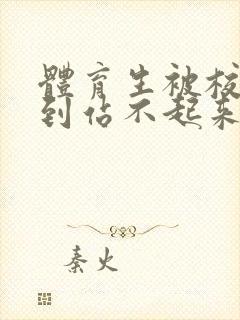 體育生被校
到佔不起來
秦火